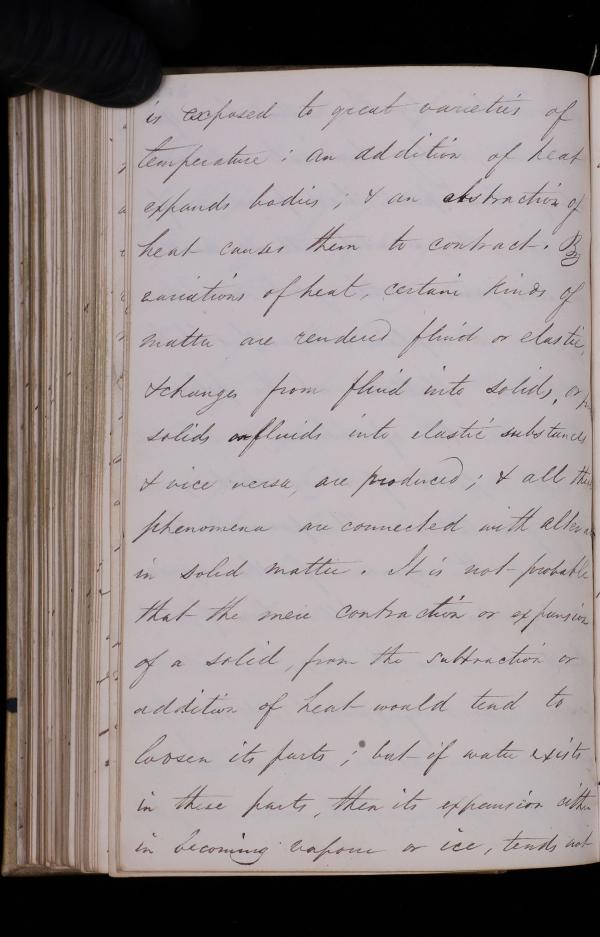 is exposed to great varieties of
temperature ; an addition of heat
expands bodies ; & an abstraction of
heat causes them to contract. By
variations of heat, certain kinds of
matter are rendered fluid or elastic,
& changes from fluid into solids, or
solids or fluids into elastic substances
& vice versa, are produced ; & all these
phenomena are connected with
in solid matter. It is not probable
that the mere contraction or expansion
of a solid, from the subtraction or
addition of heat would tend to
loosen its parts ; but if water exists
in these parts, then its expansion either
in becoming vapour or ice, tends not